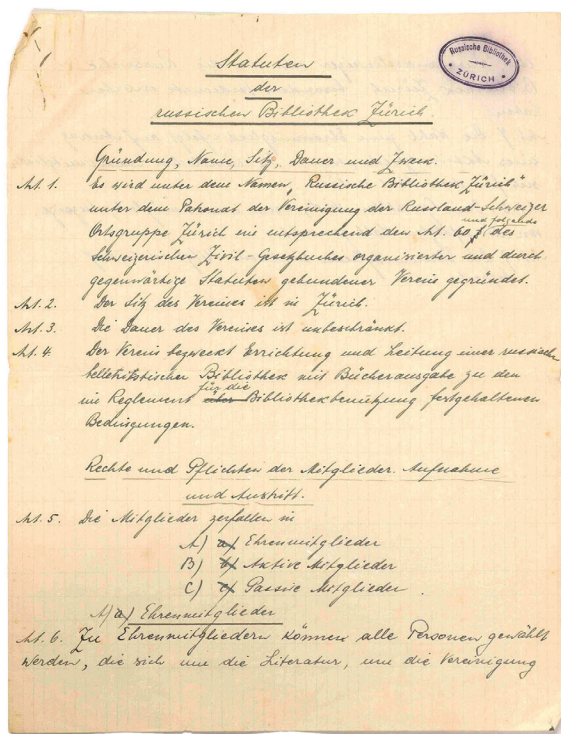 Russische Bibliothek
ZÜRICH
Statuten
der
russischen Bibliothek Zürich
Gründung, Name, Sitz, Dauer und Zweck.
Art. 1. Es wird unter dem Namen „Russische Bibliothek Zürich“
unter dem Patronat der Vereinigung der Russland-Schweizer
und folgende
Ortsgruppe Zürich ein entsprechend den Art. 60 des
Schweizerischen Zivil-Gesetzbuches organisierter und durch
gegenwärtige Statuten gebundener Verein gegründet.
Art. 2. Der Sitz des Vereines ist in Zürich.
Art. 3. Die Dauer des Vereines ist unbeschränkt.
Art. 4. Der Verein bezweckt Errichtung und Leitung einer russischen
belletristischen Bibliothek mit Bücherausgabe zu den
für die
im Reglement über Bibliothekbenützung festgehaltenen
Bedingungen.
Rechte und Pflichten der Mitglieder. Aufnahme
und Austritt.
Art. 5. Die Mitglieder zerfallen in
A) a) Ehrenmitglieder
B) b) Aktive Mitglieder
C) c) Passive Mitglieder.
A) a) Ehrenmitglieder
Art. 6. Zu Ehrenmitgliedern können alle Personen gewählt
werden, die sich um die Literatur, um die Vereinigung